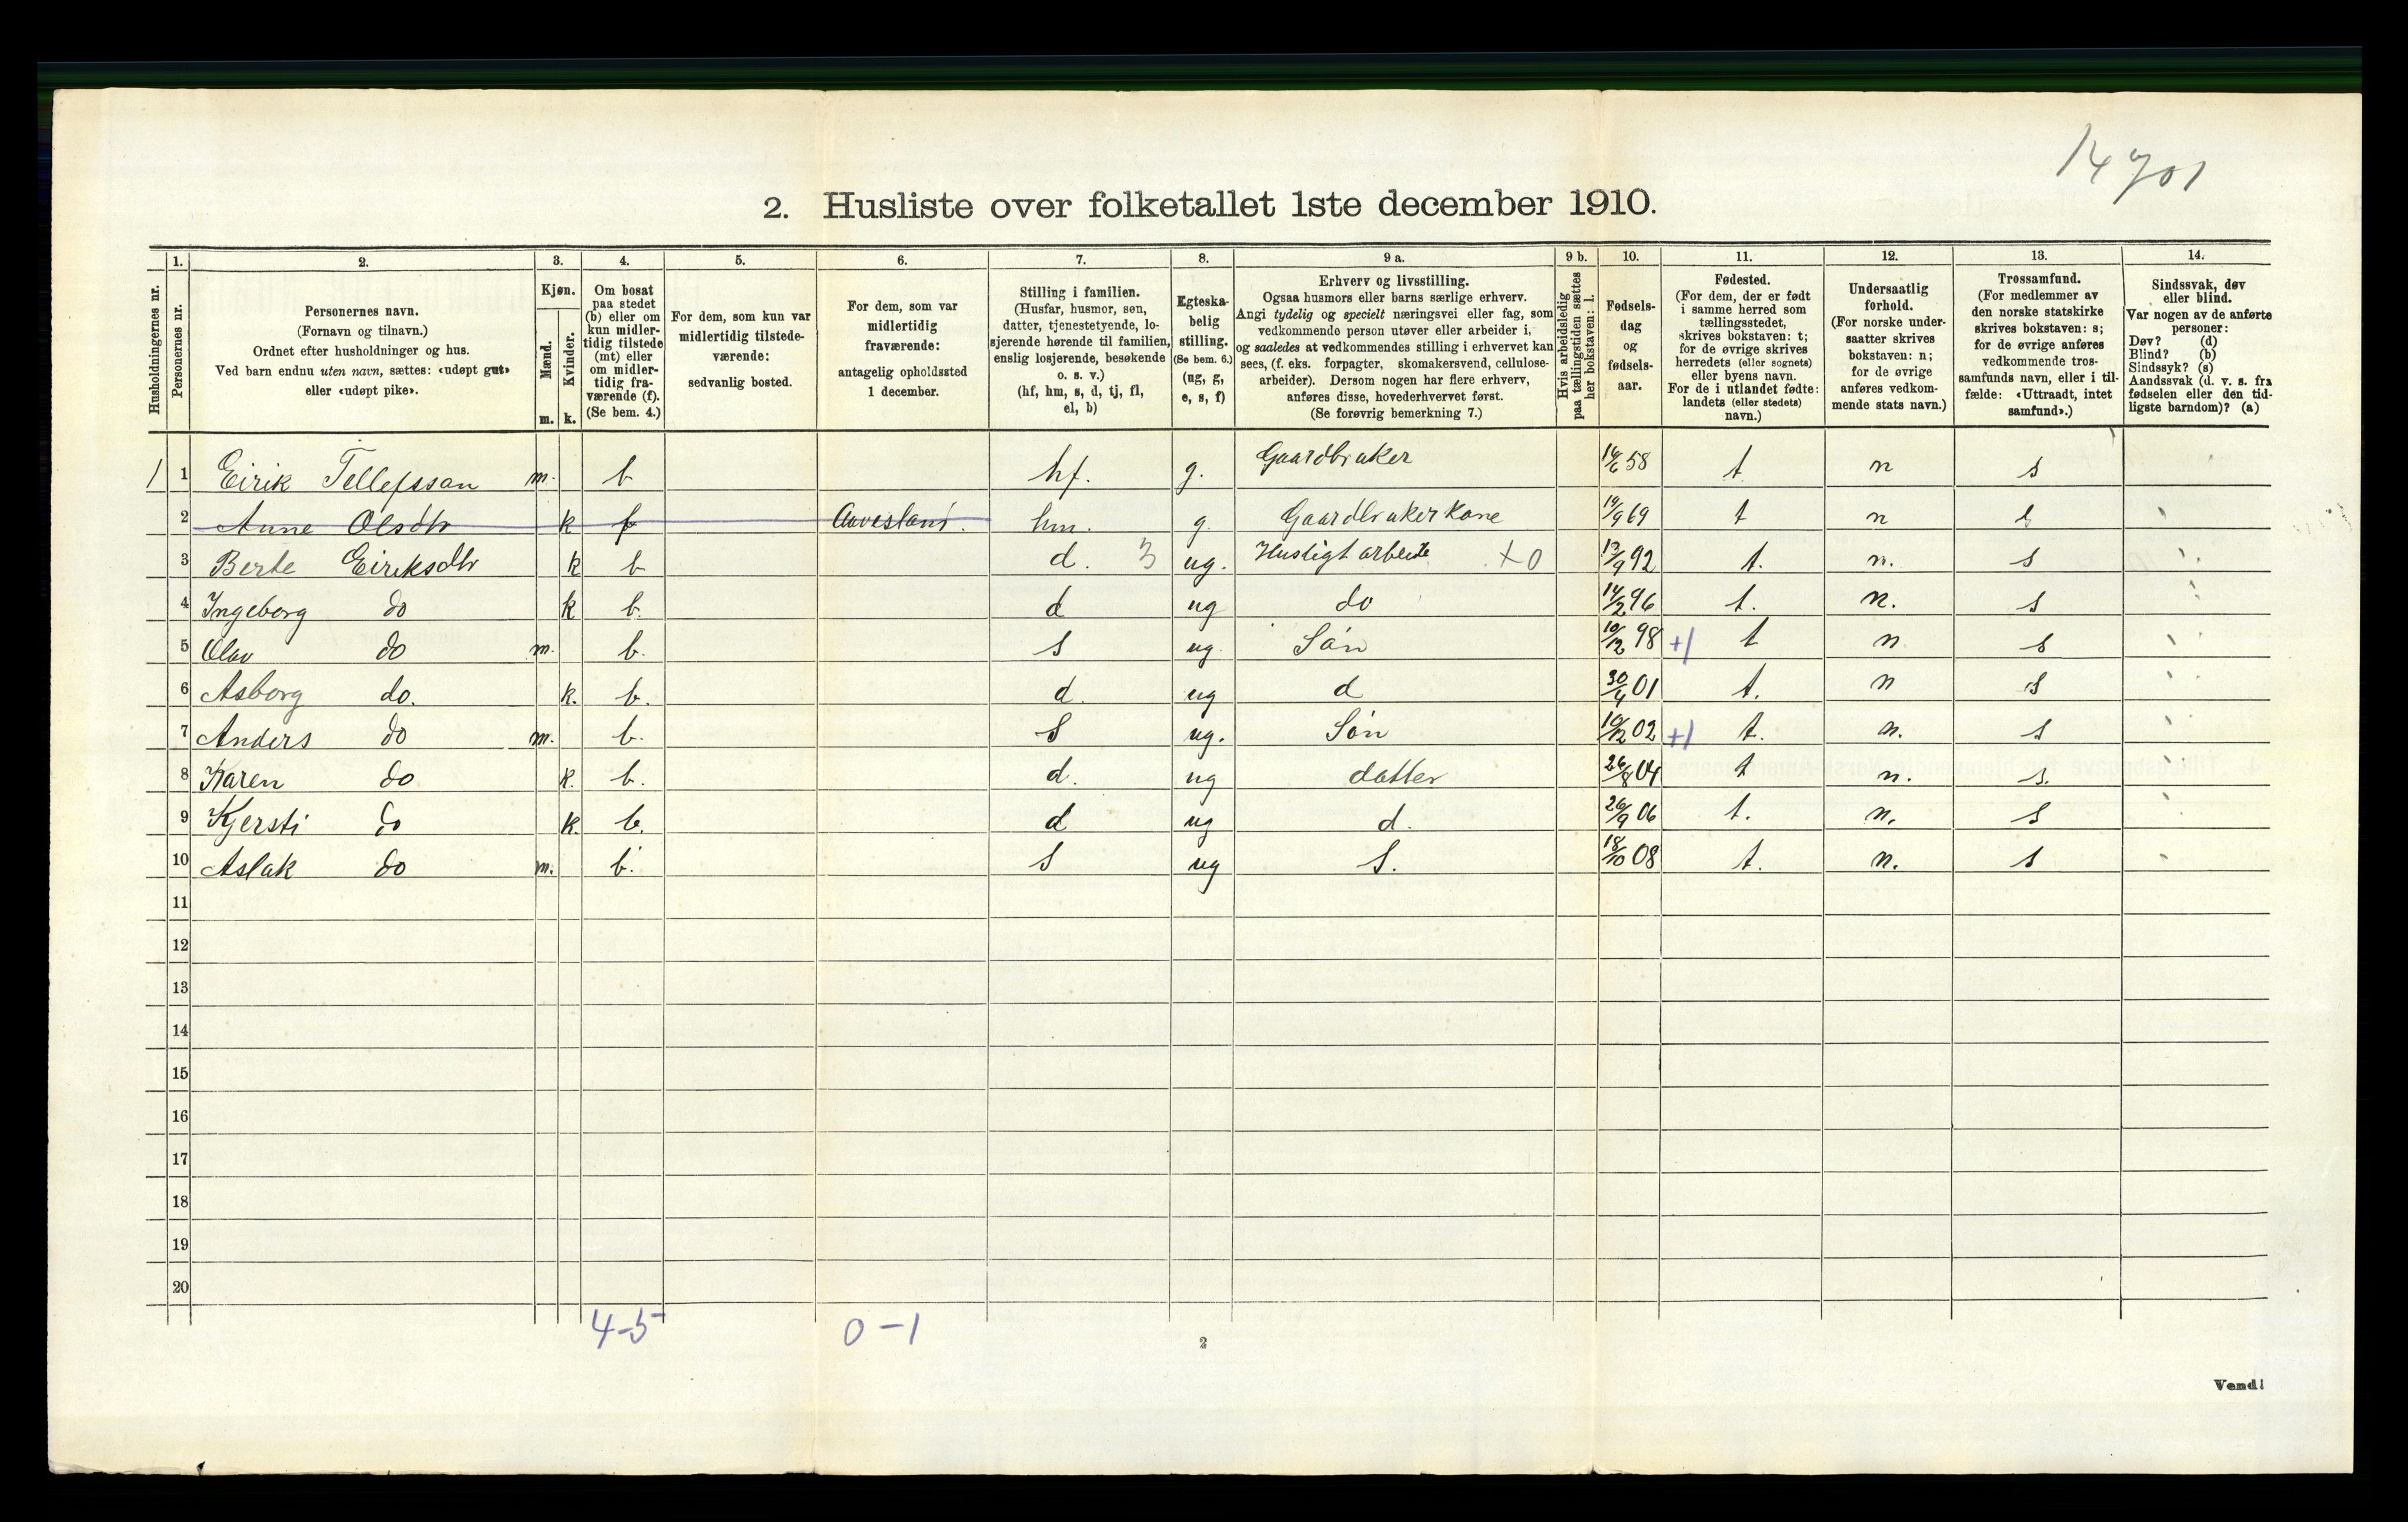 14701
2. Husliste over folketallet 1ste december 1910.
Husholdningernes nr.
1.
Personernes nr.
2.
Personernes navn.
(Fornavn og tilnavn.)
Ordnet efter husholdninger og hus.
Ved barn endnu uten navn, sættes: «udøpt gut»
eller «udøpt pike».
3.
Kjøn.
Mænd.
m.
Kvinder.
k.
4.
Om bosat
paa stedet
(b) eller om
kun midler-
tidig tilstede
(mt) eller
om midler-
tidig fra-
værende (f).
(Se bem. 4.)
5.
For dem, som kun var
midlertidig tilstede-
værende:
sedvanlig bosted.
6.
For dem, som var
midlertidig
fraværende:
antagelig opholdssted
1 december.
7.
Stilling i familien.
(Husfar, husmor, søn,
datter, tjenestetyende, lo-
sjerende hørende til familien,
enslig losjerende, besøkende
o. s. v.)
(hf, hm, s, d, tj, fl,
el, b)
8.
Egteska-
belig
stilling.
(Se bem. 6.)
(ug, g,
e, s, f)
9 a.
Erhverv og livsstilling.
Ogsaa husmors eller barns særlige erhverv.
Angi tydelig og specielt næringsvei eller fag, som
vedkommende person utøver eller arbeider i,
og saaledes at vedkommendes stilling i erhvervet kan
sees, (f. eks. forpagter, skomakersvend, cellulose-
arbeider). Dersom nogen har flere erhverv,
anføres disse, hovederhvervet først.
(Se forøvrig bemerkning 7.)
9 b.
Hvis arbeidsledig
paa tællingstiden sættes
her bokstaven: l.
10.
Fødsels-
dag
og
fødsels-
aar.
11.
Fødested.
(For dem, der er født
i samme herred som
tællingsstedet,
skrives bokstaven: t;
for de øvrige skrives
herredets (eller sognets)
eller byens navn.
For de i utlandet fødte:
landets (eller stedets)
navn.)
12.
Undersaatlig
forhold.
(For norske under-
saatter skrives
bokstaven: n;
for de øvrige
anføres vedkom-
mende stats navn.)
13.
Trossamfund.
(For medlemmer av
den norske statskirke
skrives bokstaven: s;
for de øvrige anføres
vedkommende tros-
samfunds navn, eller i til-
fælde: «Uttraadt, intet
samfund».)
14.
Sindssvak, døv
eller blind.
Var nogen av de anførte
personer:
Døv? (d)
Blind? (b)
Sindssyk? (s)
Aandssvak (d. v. s. fra
fødselen eller den tid-
ligste barndom)? (a)
1 1 Eirik Tellefssan m. b hf. g. Gaardbruker 58 t n s
2 Anne Olsdtr k f hm. g. Gaardbrukerkone 19/9 69 t n s
3 Berte Eiriksdtr k b d. 3 ug. Husligt arbeide +0 13/9 92 t. n. s
4 Ingeborg do k b. d ug do 14/2 96 t. n. s
5 Olav do m. b. s ug. Søn 10/12 98 +1 t n s
6 Asborg do. k. b. d. ug d 30/4 01 t. n s
7 Anders do m. b. s ug. Søn 02 +1 t. n. s
8 Karen do k. b. d. ug datter 26/8 04 t n. s.
9 Kjersti do k. b. d ug d. 26/9 06 t. n. s
10 Aslak do m. b. s ug s. 18/10 08 t. n. s
11
12
13
14
15
16
17
18
19
20
4-5 0-1
2
Vend!